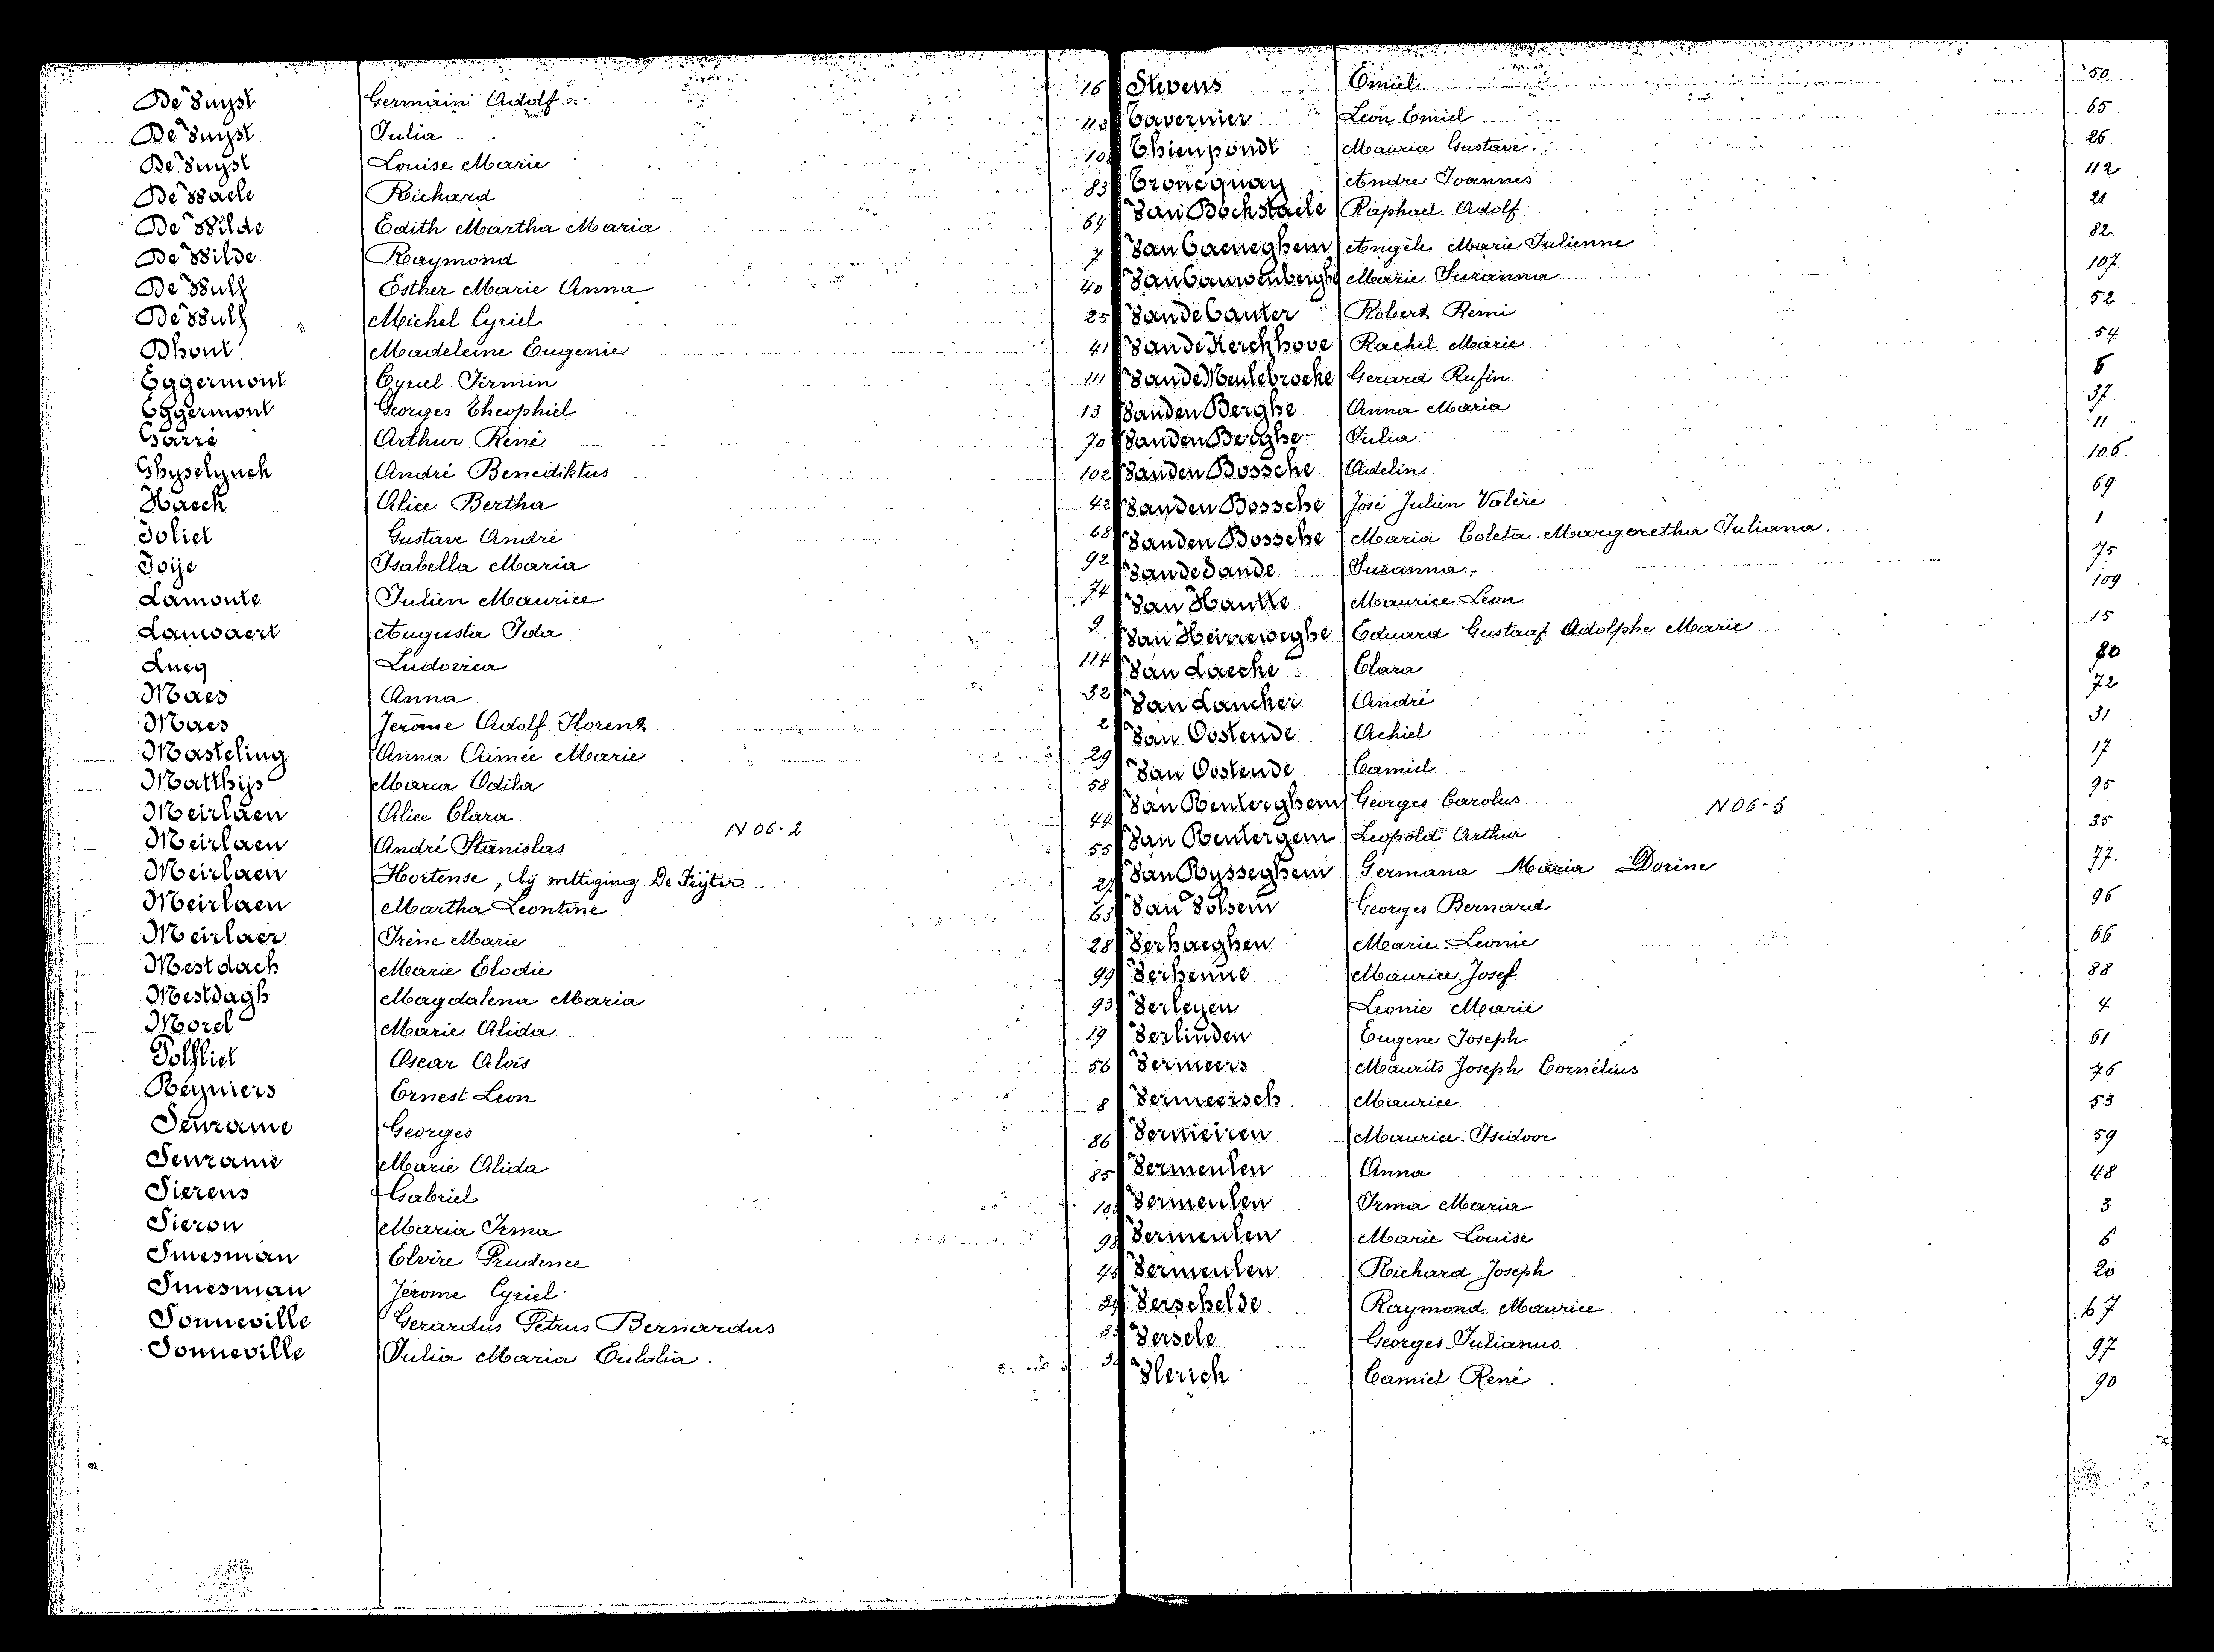 De Vuyst Germain Adolf 16
De Vuyst Julia 113
De Vuyst Louise Marie
De Waele Richard 83
De Wilde Edith Martha Maria 64
De Wilde Raymond 7
De Wulf Esther Marie Anna 40
De Wulf Michel Cyriel 25
Dhont Madeleine Eugenie 41
Eggermont Cyriel Firmin 111
Eggermont Georges Theophiel 13
Garré Arthur René 70
Ghyselynck André Benediktus 102
Haeck Alice Bertha 42
Joliet Gustave André 68
Joije Isabella Maria 92
Lamonte Julien Maurice 74
Lauwaert Augusta Ida 9
Lucq Ludovica 114
Maes Anna 32
Maes Jerôme Adolf Florent 2
Masteling Anna Aimée Marie 29
Matthijs Maria Odila 58
Meirlaen Alice Clara 44
Meirlaen André Stanislas 55
N 06-2
Meirlaen Hortense, bij wettiging De Feijter
Meirlaen Martha Leontine 63
Meirlaer Irène Marie 28
Mestdach Marie Elodie 99
Mestdagh Magdalena Maria 93
Morel Marie Alida 19
Polfliet Oscar Aloïs 56
Reyniers Ernest Leon 8
Seurame Georges 86
Seurame Marie Alida 85
Sierens Gabriel
Sieron Maria Irma 98
Smesman Elvire Prudence 45
Smesman Jérome Cyriel
Sonneville Gerardus Petrus Bernardus
Sonneville Julia Maria Eulalia.
Stevens Emiel 50
Tavernier Leon Emiel 65
Thienpondt Maurice Gustave 26
Troncquay Andre Joannes 112
Van Bockstaele Raphael Adolf 21
Van Caeneghem Angèle Marie Julienne 82
Van Cauwenberghe Marie Suzanna 107
Van de Canter Robert Remi 52
Van de Kerckhove Rachel Marie 54
Van de Meulebroeke Gerard Rufin 5
Van den Berghe Anna Maria 37
Van den Berghe Julia 11
Van den Bossche Adelin 106
Van den Bossche José Julien Valère 69
Van den Bossche Maria Coleta Margeretha Juliana. 1
Van de Vande Suzanna 75
Van Hautte Maurice Leon 109
Van Heirreweghe Eduard Gustaaf Adolphe Marie 15
Van Laecke Clara 80
Van Lancker André 72
Van Oostende Achiel 31
Van Oostende Camiel 17
Van Renterghem Georges Carolus 95
N 06-3
Van Rentergem Leopold Arthur 35
Van Rysseghem Germana Maria Dorine 77.
Van Volsem Georges Bernard 96
Verhaeghen Marie Leonie 66
Verhenne Maurice Josef 88
Verleyen Leonie Marie 4
Verlinden Eugene Joseph 61
Vermeers Maurits Joseph Cornélius 76
Vermeersch Maurice 53
Vermeiren Maurice Isidoor 59
Vermeulen Anna 48
Vermeulen Irma Maria 3
Vermeulen Marie Louise 6
Vermeulen Richard Joseph 20
Verschelde Raymond Maurice 67
Versele Georges Julianus 97
Vlerick Camiel René 90